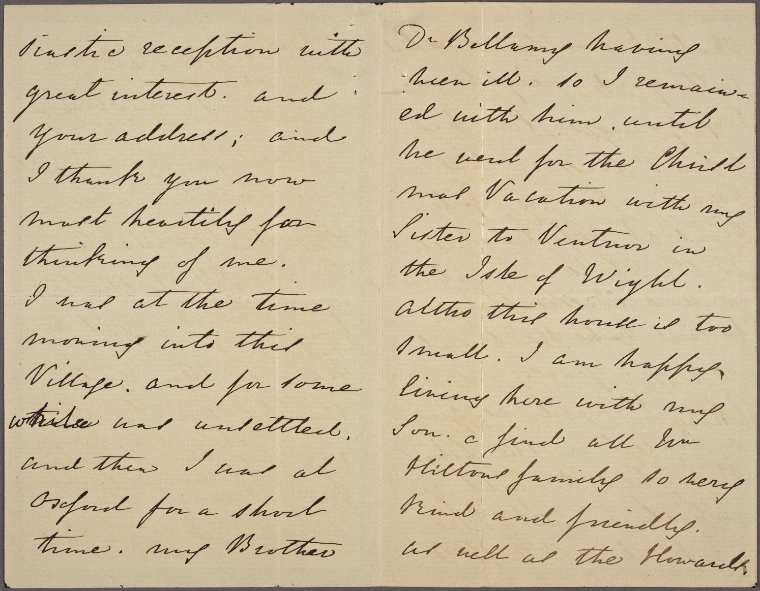 siastic reception with
great interest. and
your address; and
I thank you now
most heartily for
thinking of me.
I was at the time
moving into this
Village. and for some
while was unsettled.
and then I was at
Oxford for a short
time. my Brother
Dr Bellamy having
been ill. so I remain-
ed with him, until
he went for the Christ
mas Vacation with my
Sister to Ventnor in
the Isle of Wight.
altho this house is too
small. I am happy
living here with my
Son. & find all
Hiltons family so very
kind and friendly.
as well as the Howards.